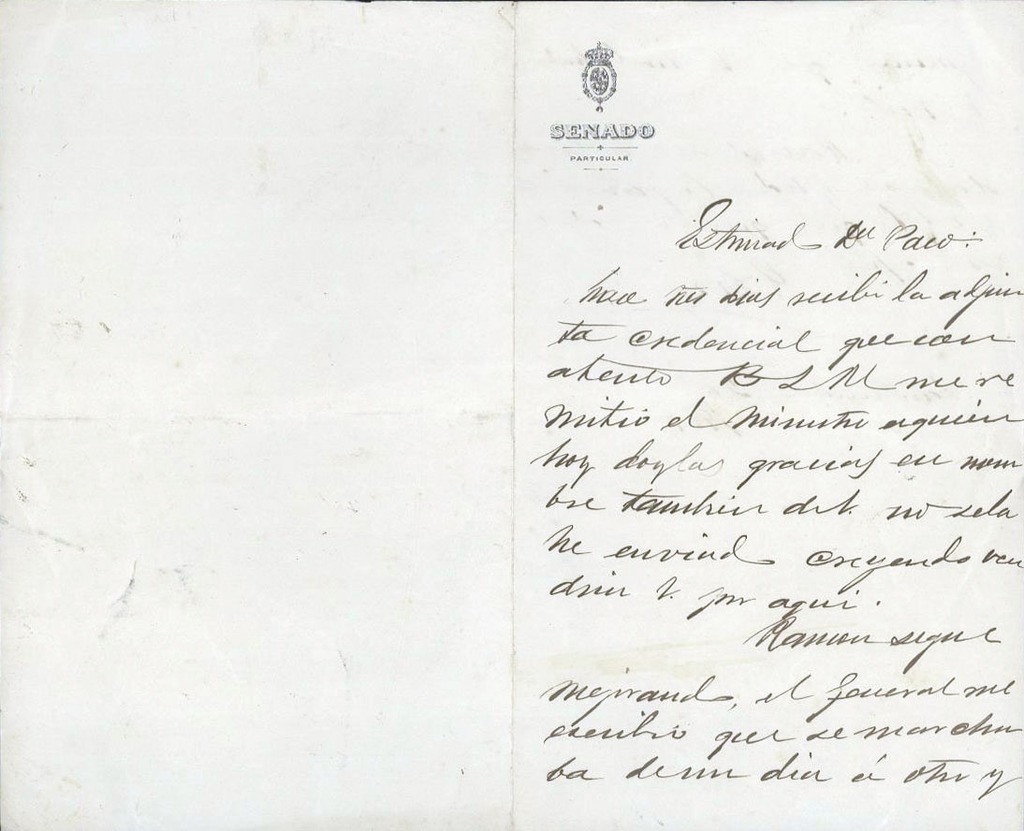 SENADO
PARTICULAR
Estimado Dn Paco:
hace tres dias recibi la adjun
ta credencial que con
atento B L M me re
mitio el Ministro aquien
hoy doy las gracias en nom
bre tambien de V. no sela
he enviado creyendo ven
dria V. por aqui.
Ramon sigue
mejorando, el General me
escribio que se marcha
ba de un dia á otro y